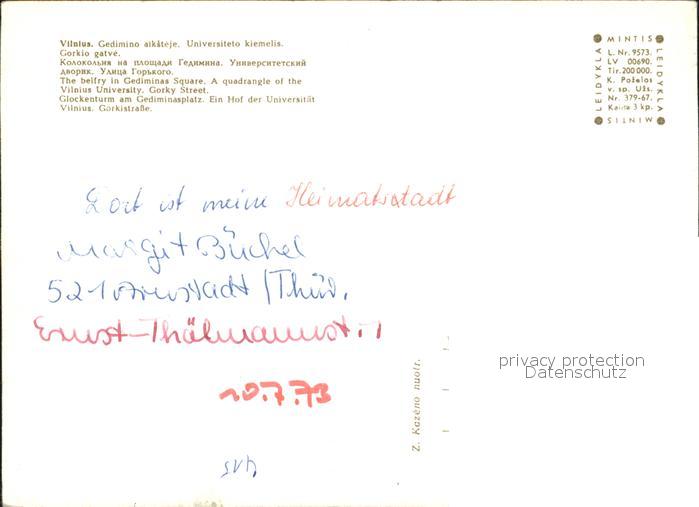 Vilnius. Gedimino aikštėje. Universiteto kiemelis.
Gorkio gatvė.
Колокольня на площади Гедимина. Университетский
дворик. Улица Горького.
The belfry in Gediminas Square. A quadrangle of the
Vilnius University. Gorky Street.
Glockenturm am Gediminasplatz. Ein Hof der Universität
Vilnius. Gorkistraße.
MINTIS
LEIDYKLA
L. Nr. 9573.
LV 00690.
Tir. 200 000.
K. Poželos
v. sp. Užs.
Nr. 379-67.
Kaina 3 kp.
LEIDYKLA
MINTIS
Dort ist meine Heimatstadt
Margit Büchel
521 Arnstadt /Thür.
Ernst-Thälmannstr. 1
10.7.73
Z. Kazėno nuotr.
privacy protection
Datenschutz